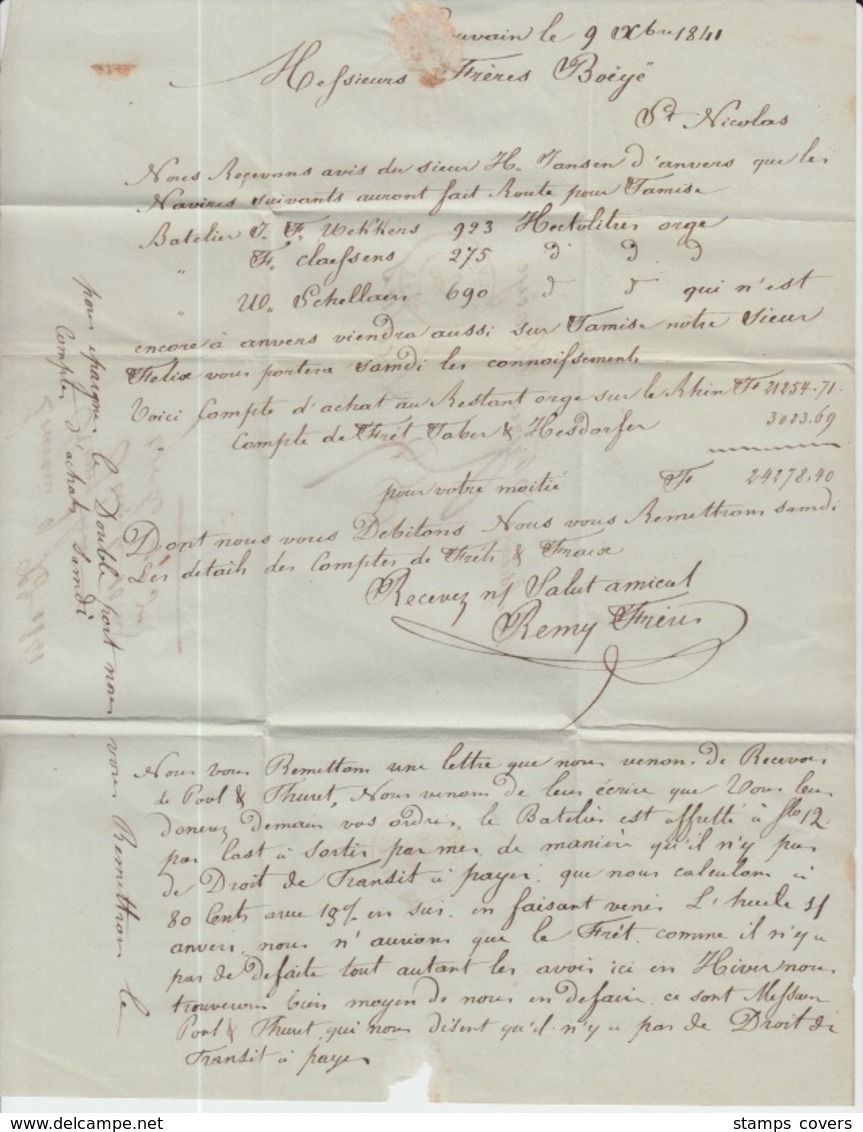 Louvain le 9 Xbre 1841
Messieurs Frères Boëyë
St Nicolas
Nous Reçevons avis du sieur H. Jansen d'anvers que les
Navires suivants auront fait Route pour Tamise
Batelier J. F. Uekkers 923 Hectolitres orge
" F. Claessens 275 d° d° d°
" W. Schellan 690 d° d° qui n'est
encore à anvers viendra aussi sur Tamise notre Sieur
Felix vous portera samdi les connoissements
Voici Compte d'achat au Restant orge sur le Rhin Fr 21254.71.
" Compte de Frêt Faber & Hesdorfer 3023.69
pour votre moitié Fr 24278.40
Dont nous vous Debitons Nous vous Remettrons samdi
Les details des Comptes de Frets & Fraix
Recevez n/ Salut amical
Remy Frères
pour epargner le Double port nous vous Remettrons le
Compte d'achat Samdi
Nous vous Remettons une lettre que nous venons de Recevoir
de Pool & Thuret, Nous venons de leur écrire que Vous leur
donerez demain vos ordres, le Batelier est affretté à flo 12
par last à sortir par mer de manière qu'il n'y pas
de Droit de Transit à payer que nous calculons à
80 Cents avec 13% en sus. en faisant venir L'huile s/
anvers, nous n'aurions que le Frêt. comme il n'y a
pas de defaite tout autant les avoir ici en Hiver nous
trouverons bien moyen de nous en defaire. ce sont Messieurs
Pool & Thuret qui nous disent qu'il n'y a pas de Droit de
Transit à payer
stamps covers